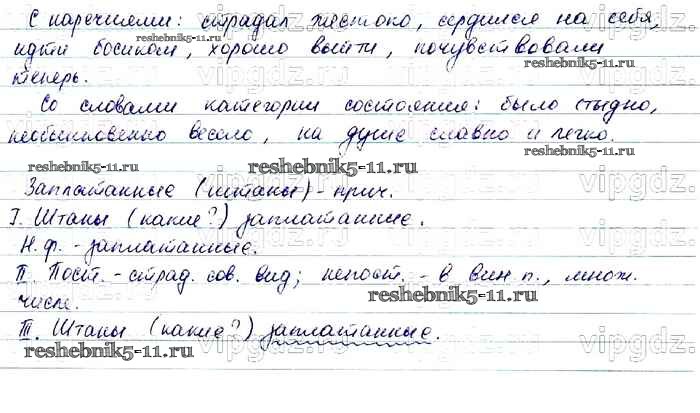 С наречиями: страдал жестоко, сердился на себя,
идти босиком, хорошо выйти, почувствовали
теперь.
Со словами категории состояния: было стыдно,
необыкновенно весело, на душе славно и легко.
Заплатанные (штаны) - прич.
I. Штаны (какие?) заплатанные.
Н.ф. - заплатанные.
II. Пост. - страд. сов. вид; непост. - в вин. п., множ.
числе.
III. Штаны (какие?) заплатанные.
reshebnik5-11.ru
reshebnik5-11.ru
reshebnik5-11.ru
reshebnik5-11.ru
reshebnik5-11.ru
reshebnik5-11.ru
vipgdz.ru